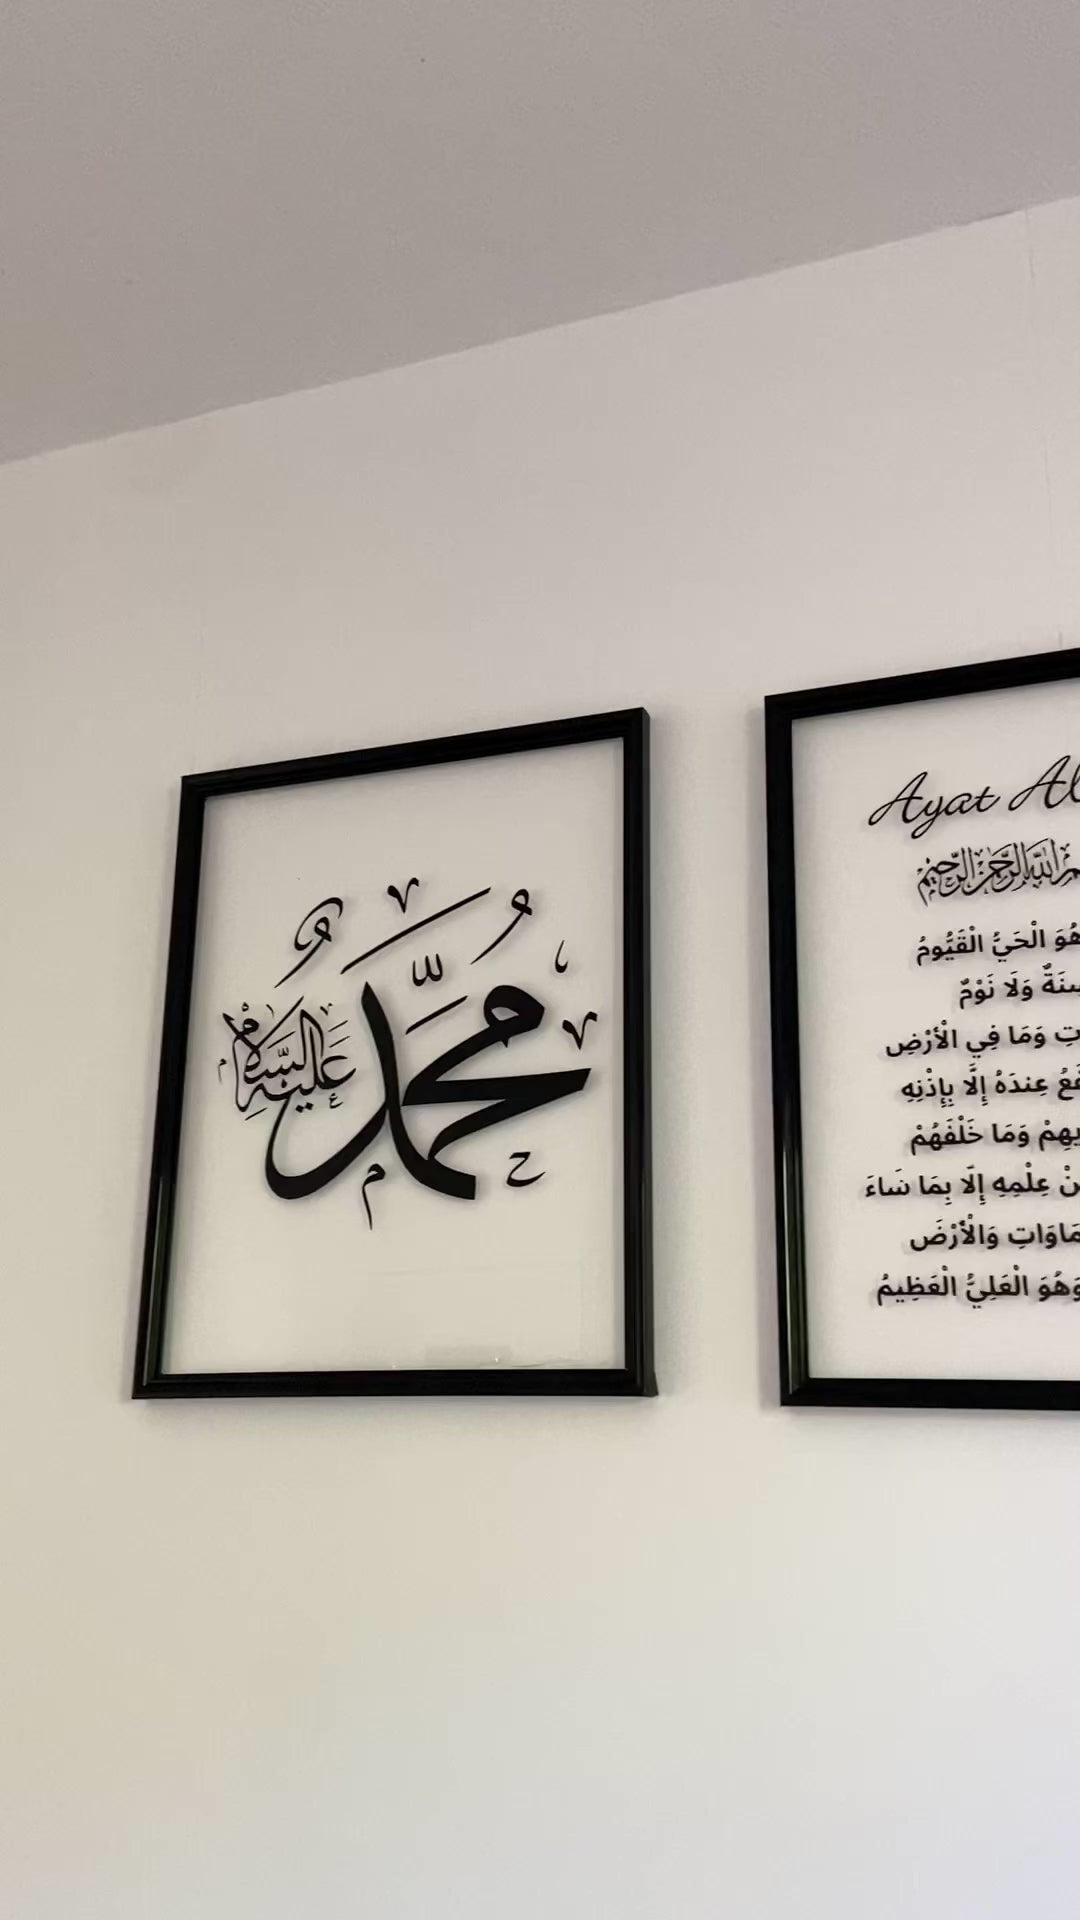 محمد
عليه السلام
Ayat Al
الله الرحمن الرحيم
هُوَ الْحَيُّ الْقَيُّومُ
سِنَةٌ وَلَا نَوْمٌ
وَمَا فِي الْأَرْضِ
عِندَهُ إِلَّا بِإِذْنِهِ
وَمَا خَلْفَهُمْ
عِلْمِهِ إِلَّا بِمَا شَاءَ
وَالْأَرْضَ
وَهُوَ الْعَلِيُّ الْعَظِيمُ